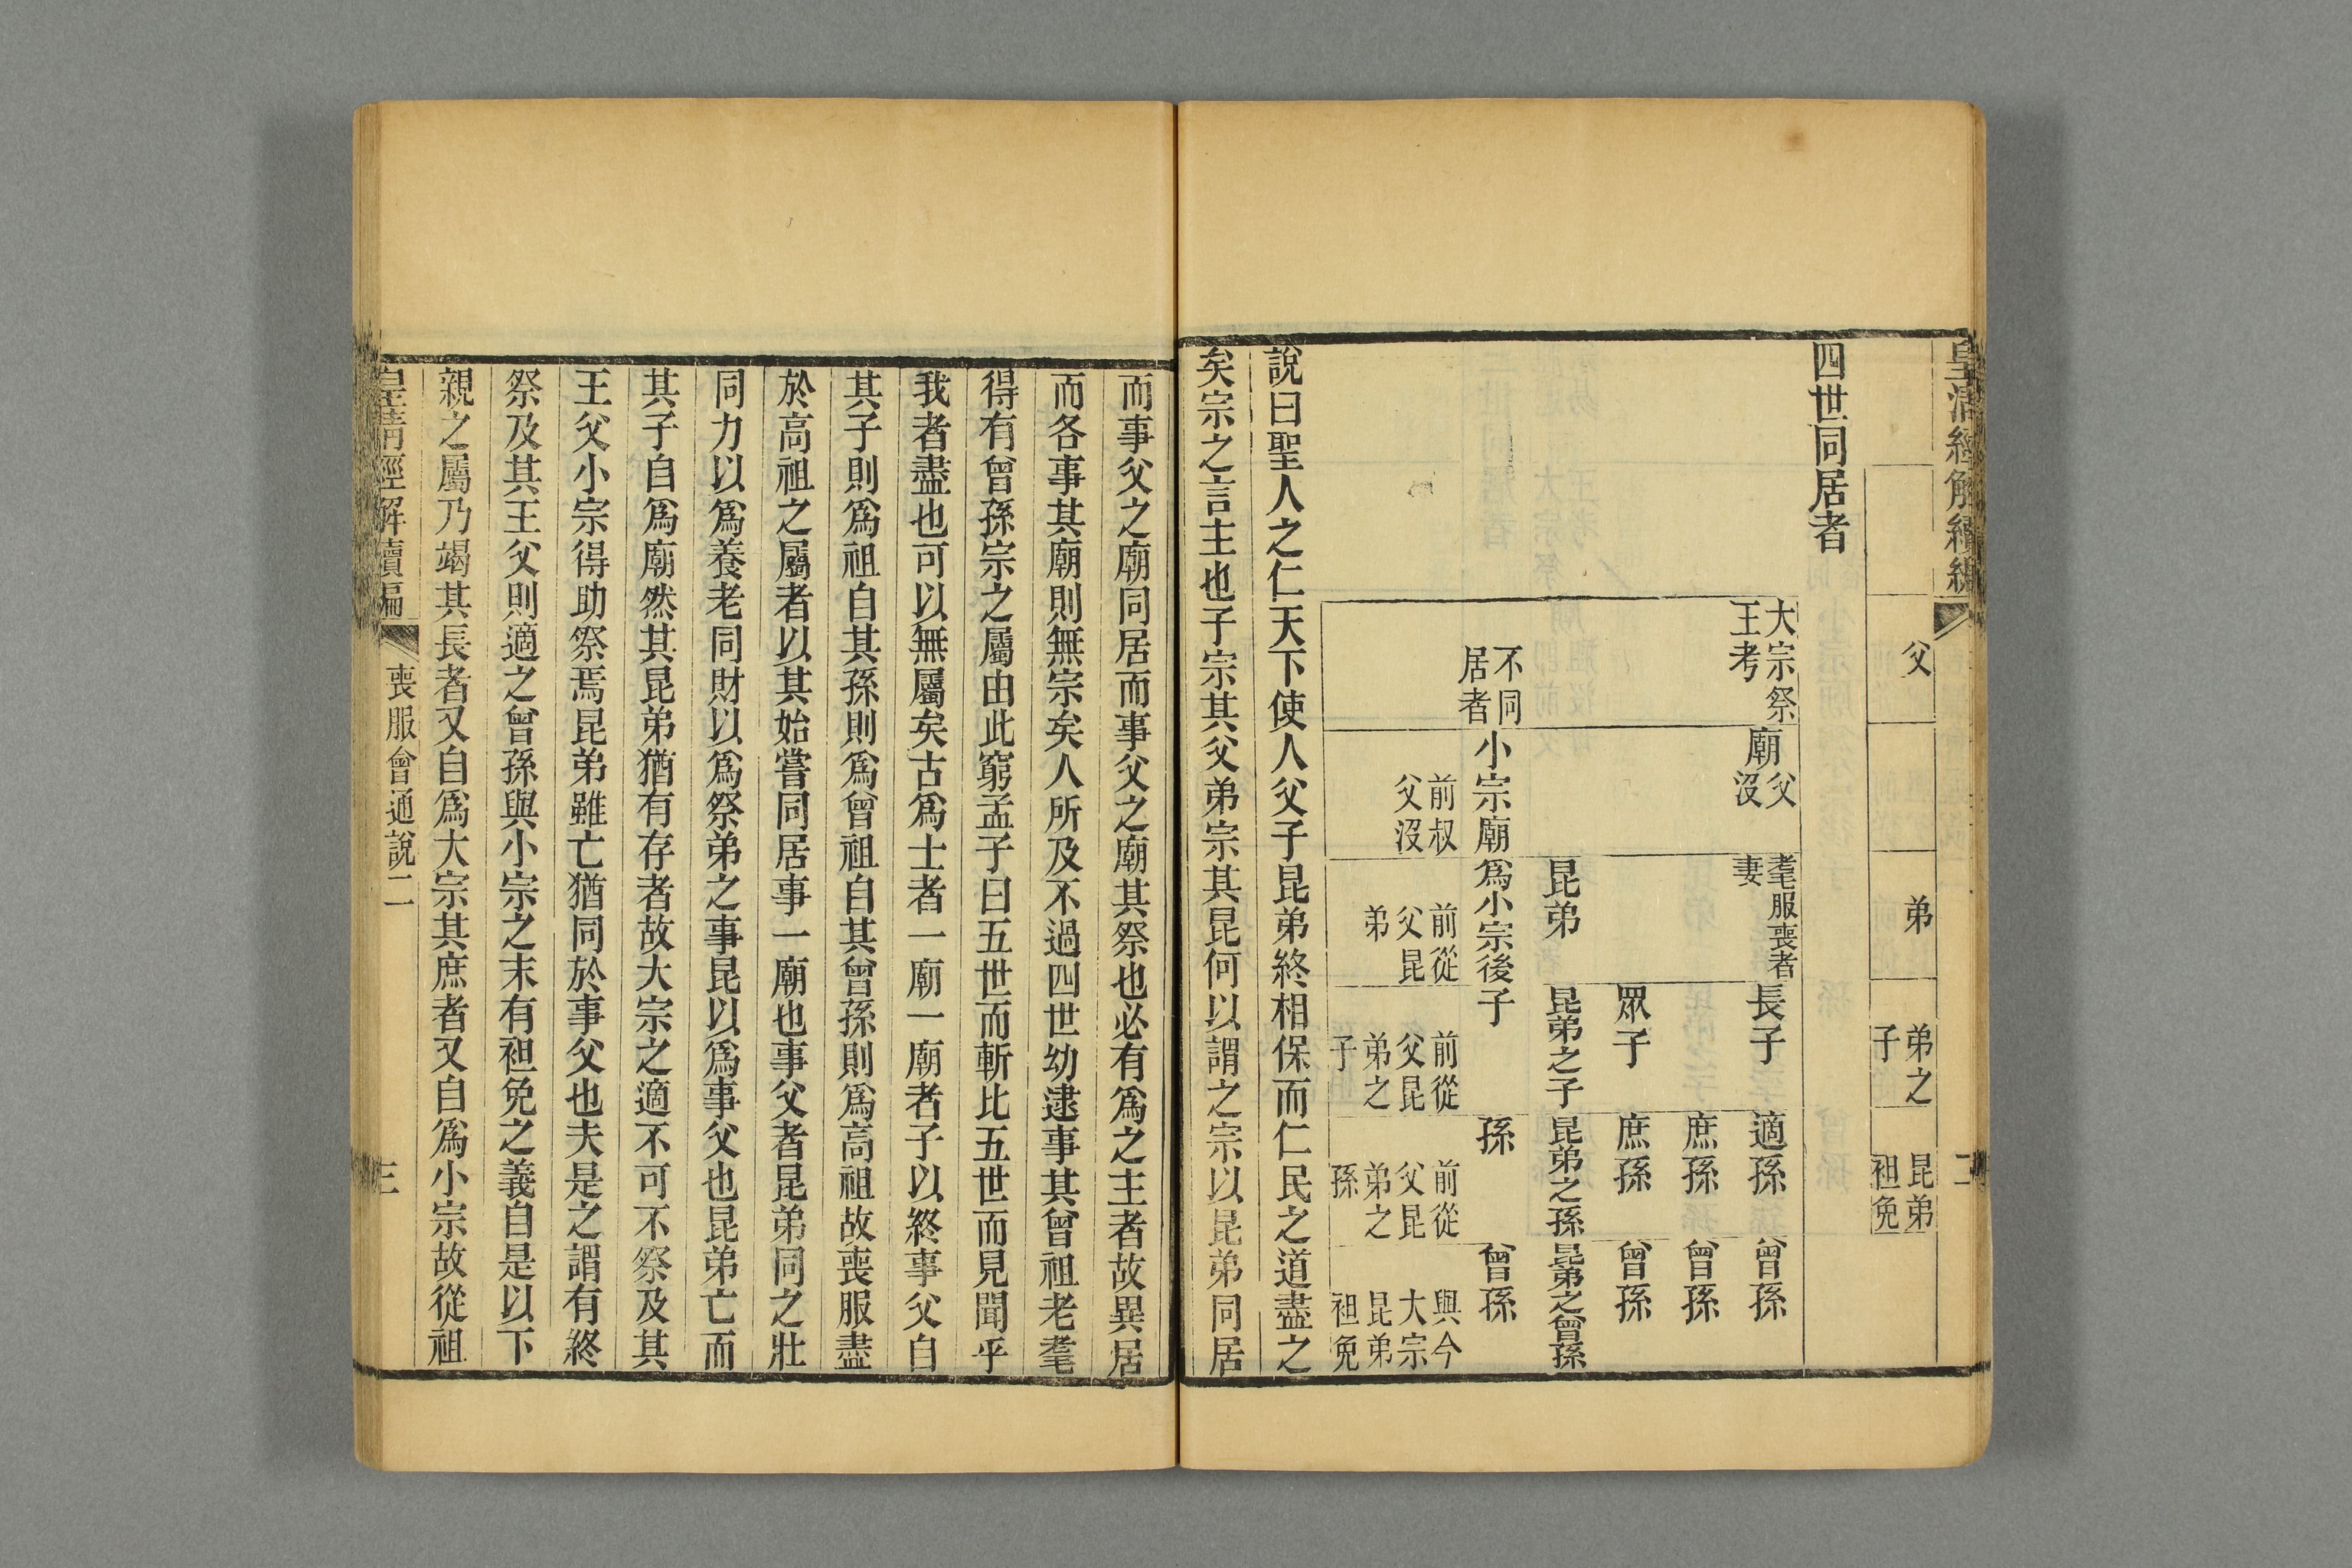 皇清經解續編
二
父
弟
弟之
子
昆弟
袒免
四世同居者
大宗祭
王考
廟
父
沒
耄服喪者
妻
長子
適孫
曾孫
庶孫
曾孫
眾子
庶孫
曾孫
昆弟
昆弟之子
昆弟之孫
昆弟之曾孫
不同
居者
小宗廟
爲小宗後
子
孫
曾孫
前叔
父沒
前從
父昆
弟
前從
父昆
弟之
子
前從
父昆
弟之
孫
與今
大宗
昆弟
袒免
說曰聖人之仁天下使人父子昆弟終相保而仁民之道盡之
矣宗之言主也子宗其父弟宗其昆何以謂之宗以昆弟同居
而事父之廟同居而事父之廟其祭也必有爲之主者故異居
而各事其廟則無宗矣人所及不過四世幼逮事其曾祖老耄
得有曾孫宗之屬由此窮孟子曰五世而斬比五世而見聞乎
我者盡也可以無屬矣古爲士者一廟一廟者子以終事父自
其子則爲祖自其孫則爲曾祖自其曾孫則爲高祖故喪服盡
於高祖之屬者以其始嘗同居事一廟也事父者昆弟同之壯
同力以爲養老同財以爲祭弟之事昆以爲事父也昆弟亡而
其子自爲廟然其昆弟猶有存者故大宗之適不可不祭及其
王父小宗得助祭焉昆弟雖亡猶同於事父也夫是之謂有終
祭及其王父則適之曾孫與小宗之末有袒免之義自是以下
親之屬乃竭其長者又自爲大宗其庶者又自爲小宗故從祖
皇清經解續編
喪服會通說二
三